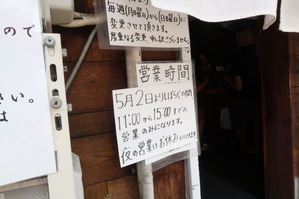 毎週(月曜日)から(日曜日)に
変更させて頂きます。
度重なる変更 申し訳ございません
営業時間
5月2日よりしばらくの間
11:00から15:00までの
営業のみになります。
夜の営業はお休み
ので
さい。
は